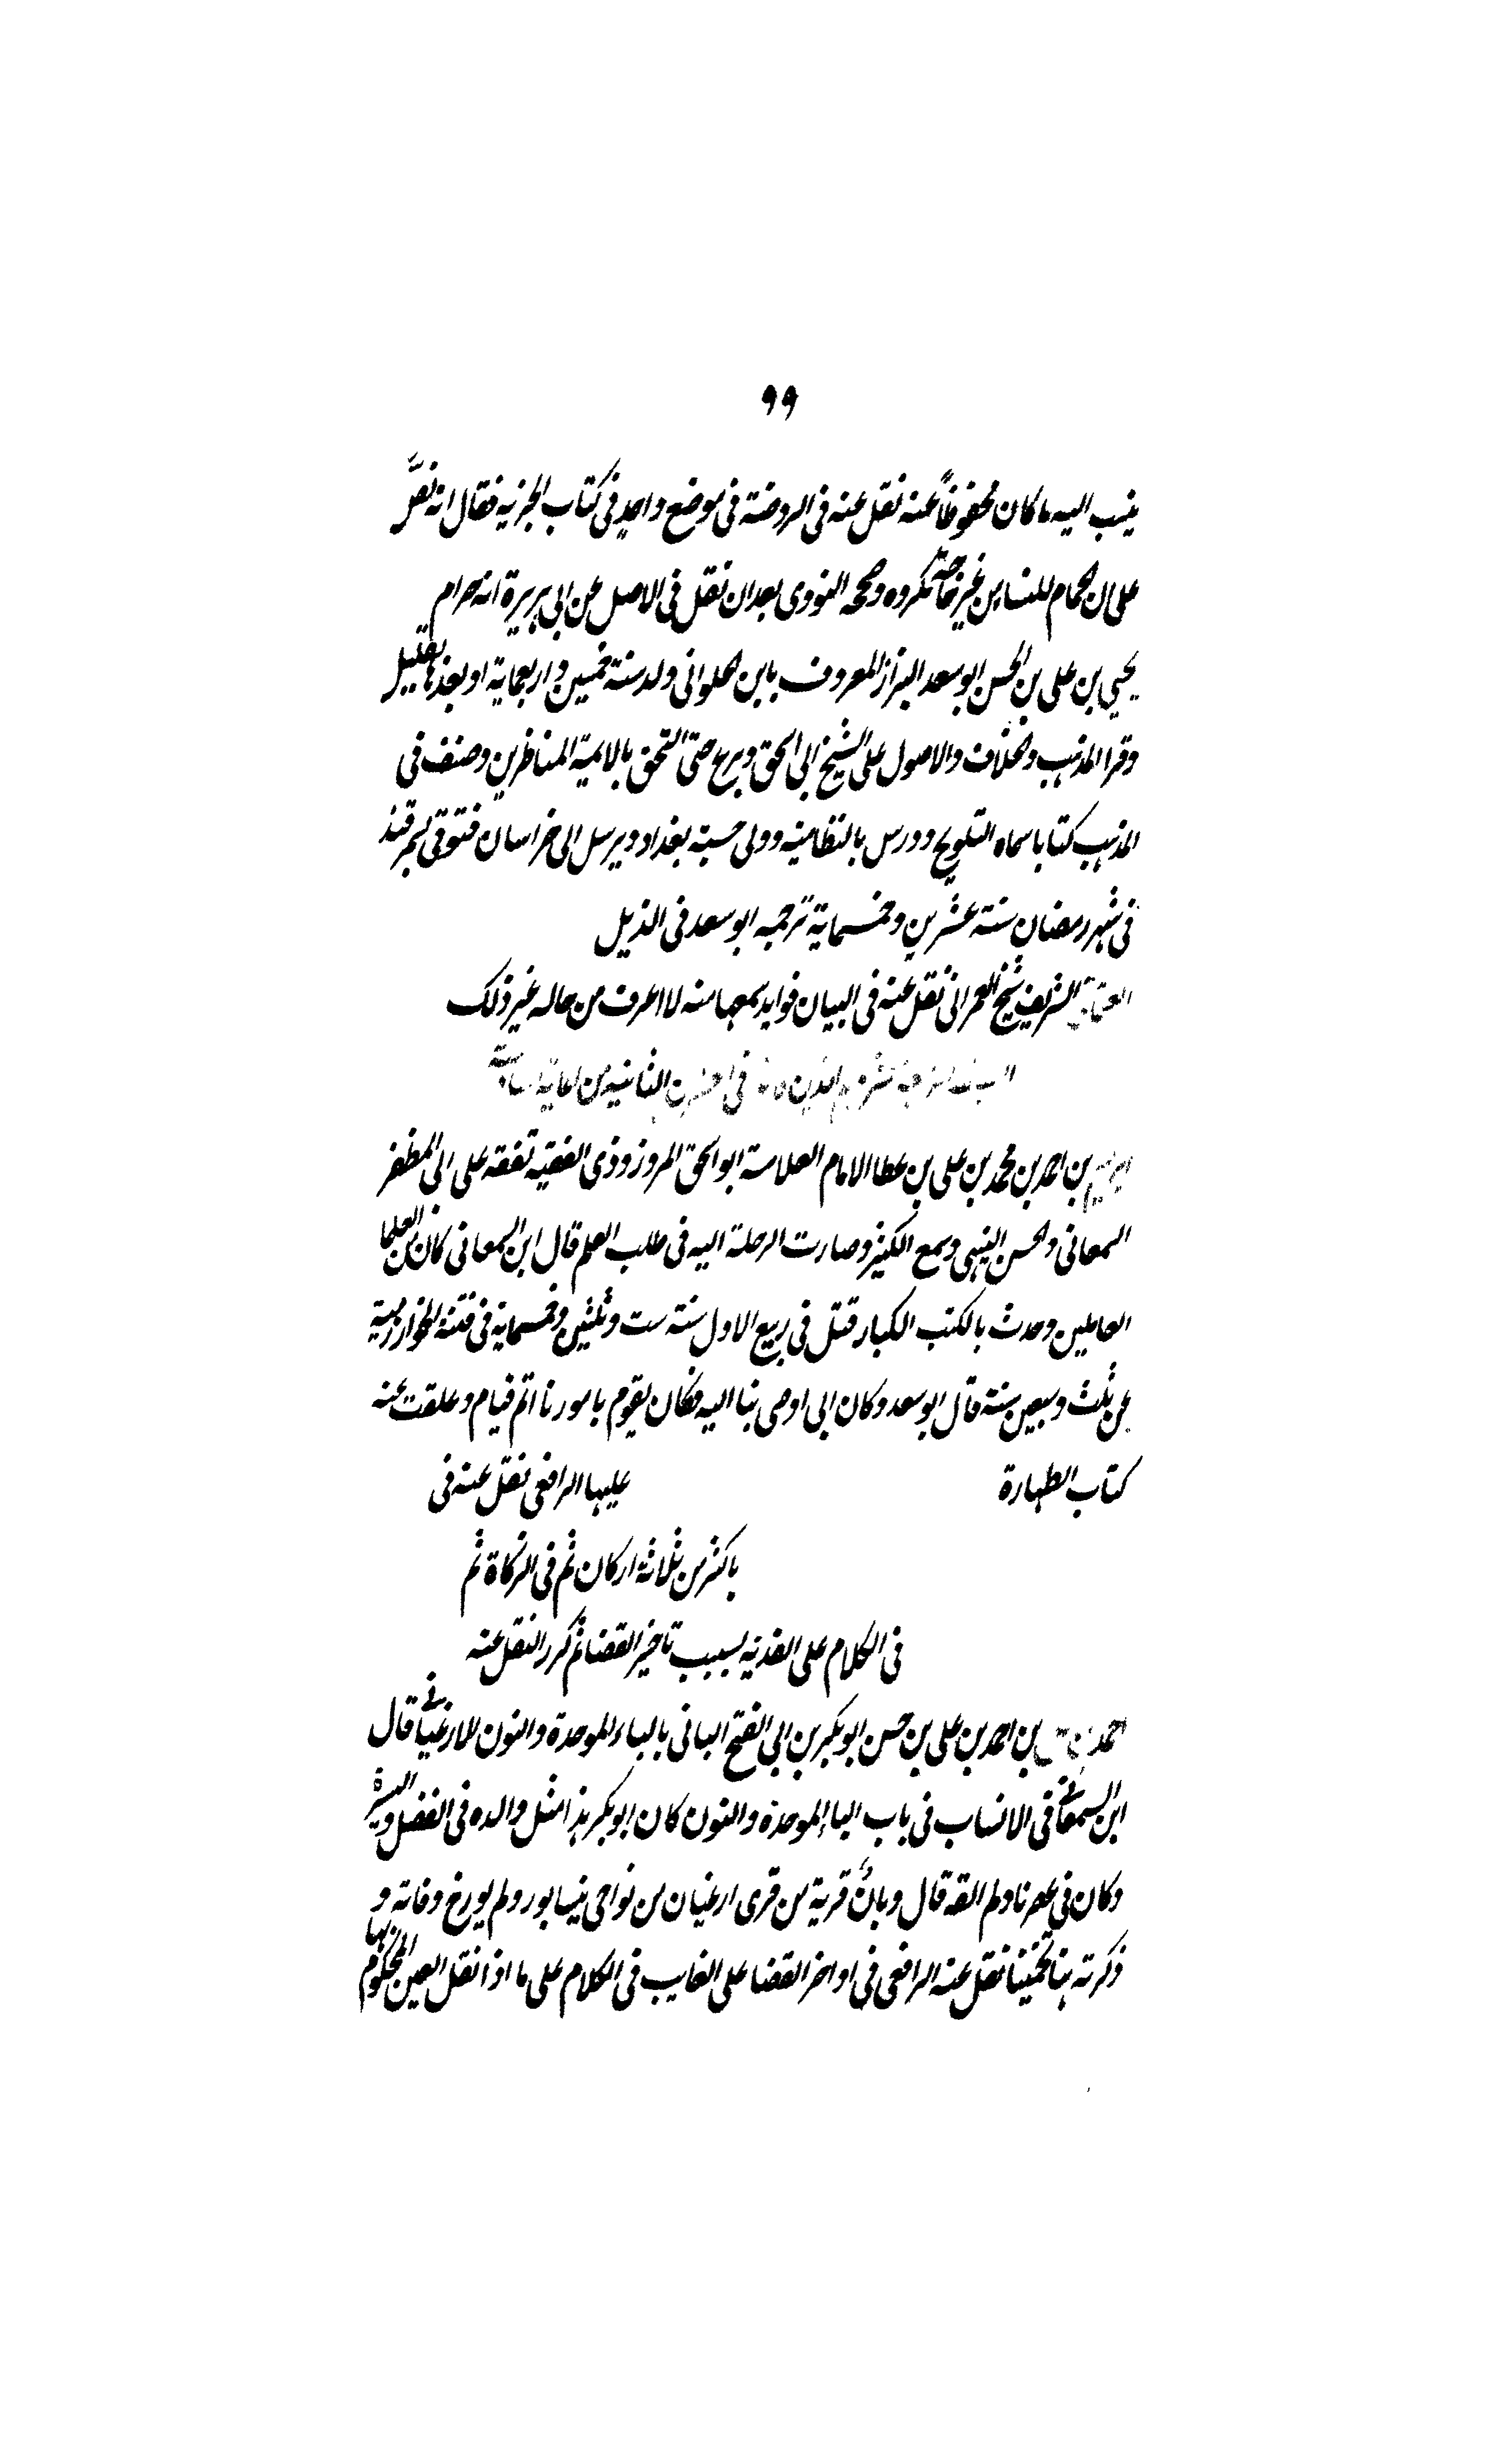 ٩٩
ينسب اليه ما كان محفوظاً عنه نقل عنه فى الروضة فى موضع واحد فى كتاب الجزيه فقال انه نصَّ
على ان الحمام للنسا من غير حاجة مكروه وصححه النووى بعد ان نقل فى الاصل عن ابى هريرة انه حرام
يحيى بن على بن الحسن ابو سعد البزاز المعروف بابن الحلوانى ولد سنة خمسين و اربعماية او بعدها بقليل
وقرا المذهب والخلاف والاصول على الشيخ ابى اسحق وبرع حتى التحق بالايمة المناظرين وصنف فى
المذهب كتابا سماه التلويح ودرس بالنظامية وولى حسبة بغداد ويرسل الى خراسان فتوفى بسمرقند
فى شهر رمضان سنة عشرين وخمسماية ترجمه ابو سعد فى الذيل
الشريف شيخ العمرانى نقل عنه فى البيان فوايد سمعها منه لا اعرف من حاله غير ذلك
فى العشرين الثانية من الماية السادسة
ابرهيم بن احمد بن محمد بن على بن عطا الامام العلامة ابو اسحق المروزوذى الفقيه تفقه على ابى المظفر
السمعانى والحسن النيهى وسمع الكثير وصارت الرحلة اليه فى طلب العلم قال ابن السمعانى كان من العلما
العاملين وحدث بالكتب الكبار قتل فى ربيع الاول سنة ست وثلثين وخمسماية فى فتنة الخوارزمية
عن ثلث وسبعين سنة قال ابو سعد وكان ابى اوصى بنا اليه فكان يقوم بامورنا اتم قيام و علقت عنه
كتاب الطهارة عليها الرافعى نقل عنه فى
باكثر من ثلاثة اركان ثم فى الزكاة ثم
فى الكلام على الفدية بسبب تاخير القضا ثم كرر النقل عنه
احمد بن بن احمد بن على بن حسن ابو بكر بن ابى الفتح البانى بالباء الموحدة والنون الارغيانى قال
ابن السمعانى فى الانساب فى باب الباء الموحدة والنون كان ابو بكر هذا مثل والده فى الفضل والسيرة
وكان فى عصرنا ولم القه قال وبان قرية من قرى ارغيان من نواحى نيسابور ولم يورخ وفاته و
ذكرته هنا تخمينا نقل عنه الرافعى فى اواخر القضا على الغايب فى الكلام على ما اذا نقل العين المحكوم بها